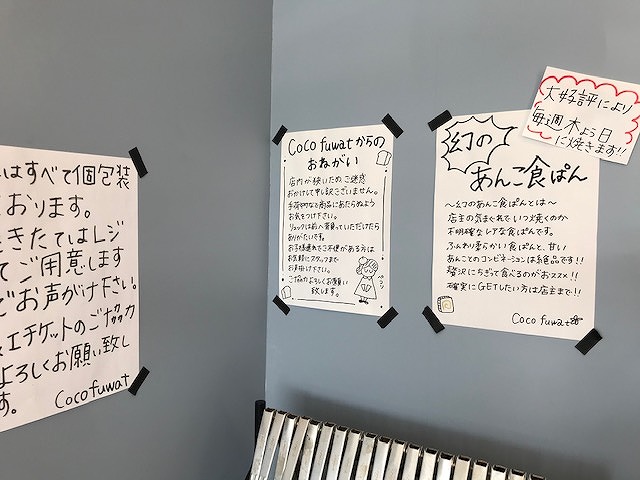 はすべて個包装
おります。
きたてはレジ
てご用意します
でお声がけ下さい。
エチケットのご協力
よろしくお願い致し
す。
Cocofuwat
Coco fuwatからの
おねがい
店内が狭いためご迷惑
おかけして申し訳ございません。
手荷物など商品にあたらぬよう
お気をつけ下さい。
リュックは前へ背負っていただけたら
ありがたいです。
お子様連れでご不便がある方は
お気軽にスタッフまで
お声掛け下さい。
ご協力よろしくお願い
致します。
ペコッ
幻の
あんこ食ぱん
～幻のあんこ食ぱんとは～
店主の気まぐれでいつ焼くのか
不明確なレアな食ぱんです。
ふんわり柔らかい食ぱんと、甘い
あんことのコンビネーションは絶品です!!
贅沢にちぎって食べるのがおススメ!!
確実にGETしたい方は店主まで!!
Coco fuwat
大好評により
毎週木よう日
に焼きます!!